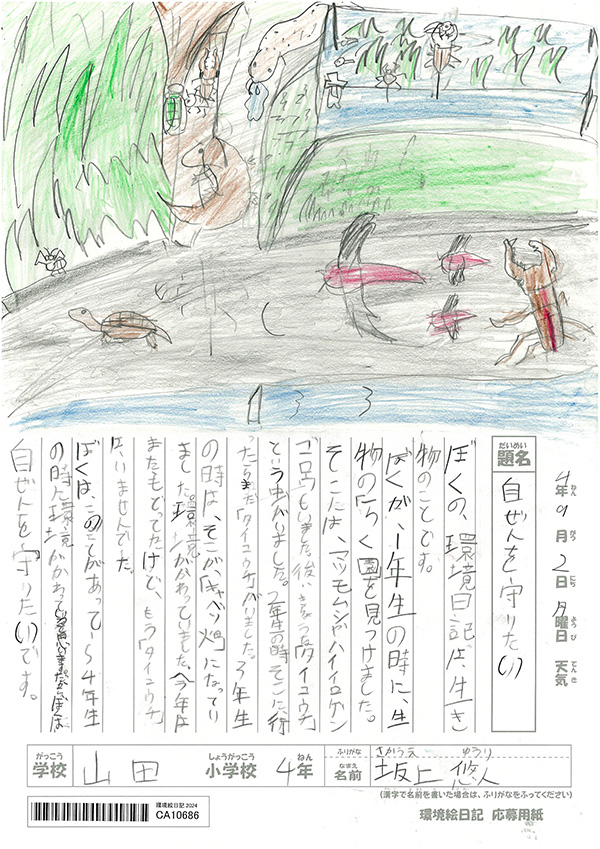 だいめい
題名
自ぜんを守りたい
4年9月2日月曜日 天気
ねん がつ にち ようび てんき
ぼくの、環境日記は、生き
物のことです。
ぼくが、1年生の時に、生
物のらく園を見つけました。
そこには、マツモムシやハイイロゲン
ゴロウもいました。後、
「タイコウチ」
という虫がいました。2年生の時そこに行
ったらまだ「タイコウチ」がいました。3年生
の時は、そこが「キャベツ畑」になってい
ました環境がかわっていました、今年は
またもどってたけど、もう「タイコウチ」
は、いませんでした。
ぼくは、このことがあってから4年生
の時に環境がかわっている思います。だからぼくは
自ぜんを守りたいです。
がっこう
学校
山田
しょうがっこう
小学校
4年
ねん
ふりがな
さかうえ ゆうり
なまえ
名前
坂上 悠人
(漢字で名前を書いた場合は、ふりがなをふってください)
環境絵日記 2024
CA10686
環境絵日記 応募用紙